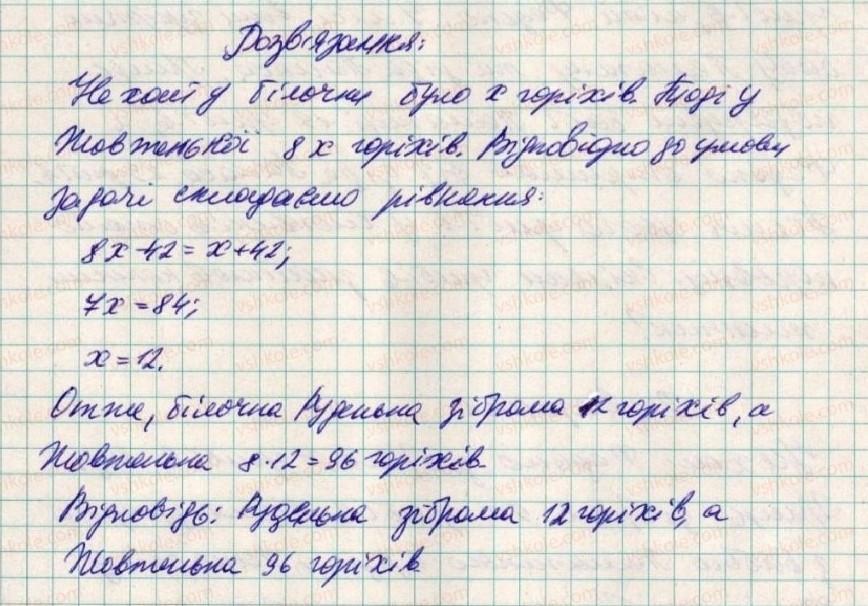 Розв'язання:
Нехай у білочки було x горіхів. Тоді у
Жовтенької 8x горіхів. Відповідно до умови
задачі складаємо рівняння:
8x-42=x+42;
7x=84;
x=12.
Отже, білочка Руденька зібрала 12 горіхів, а
Жовтенька 8·12=96 горіхів.
Відповідь: Руденька зібрала 12 горіхів, а
Жовтенька 96 горіхів